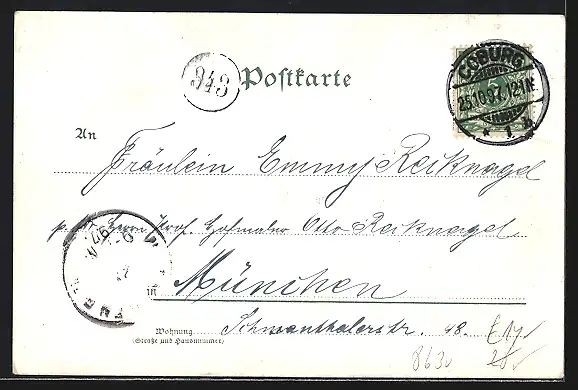 943
Postkarte
COBURG
25.10.97. 12-1N.
* 1. *
An
Fräulein Emmy Reiknagel
p. Adr. Herrn Prof. Hofmaler Otto Reiknagel
in München
Wohnung
(Straße und Hausnummer)
Schwanthalerstr. 48.
8630